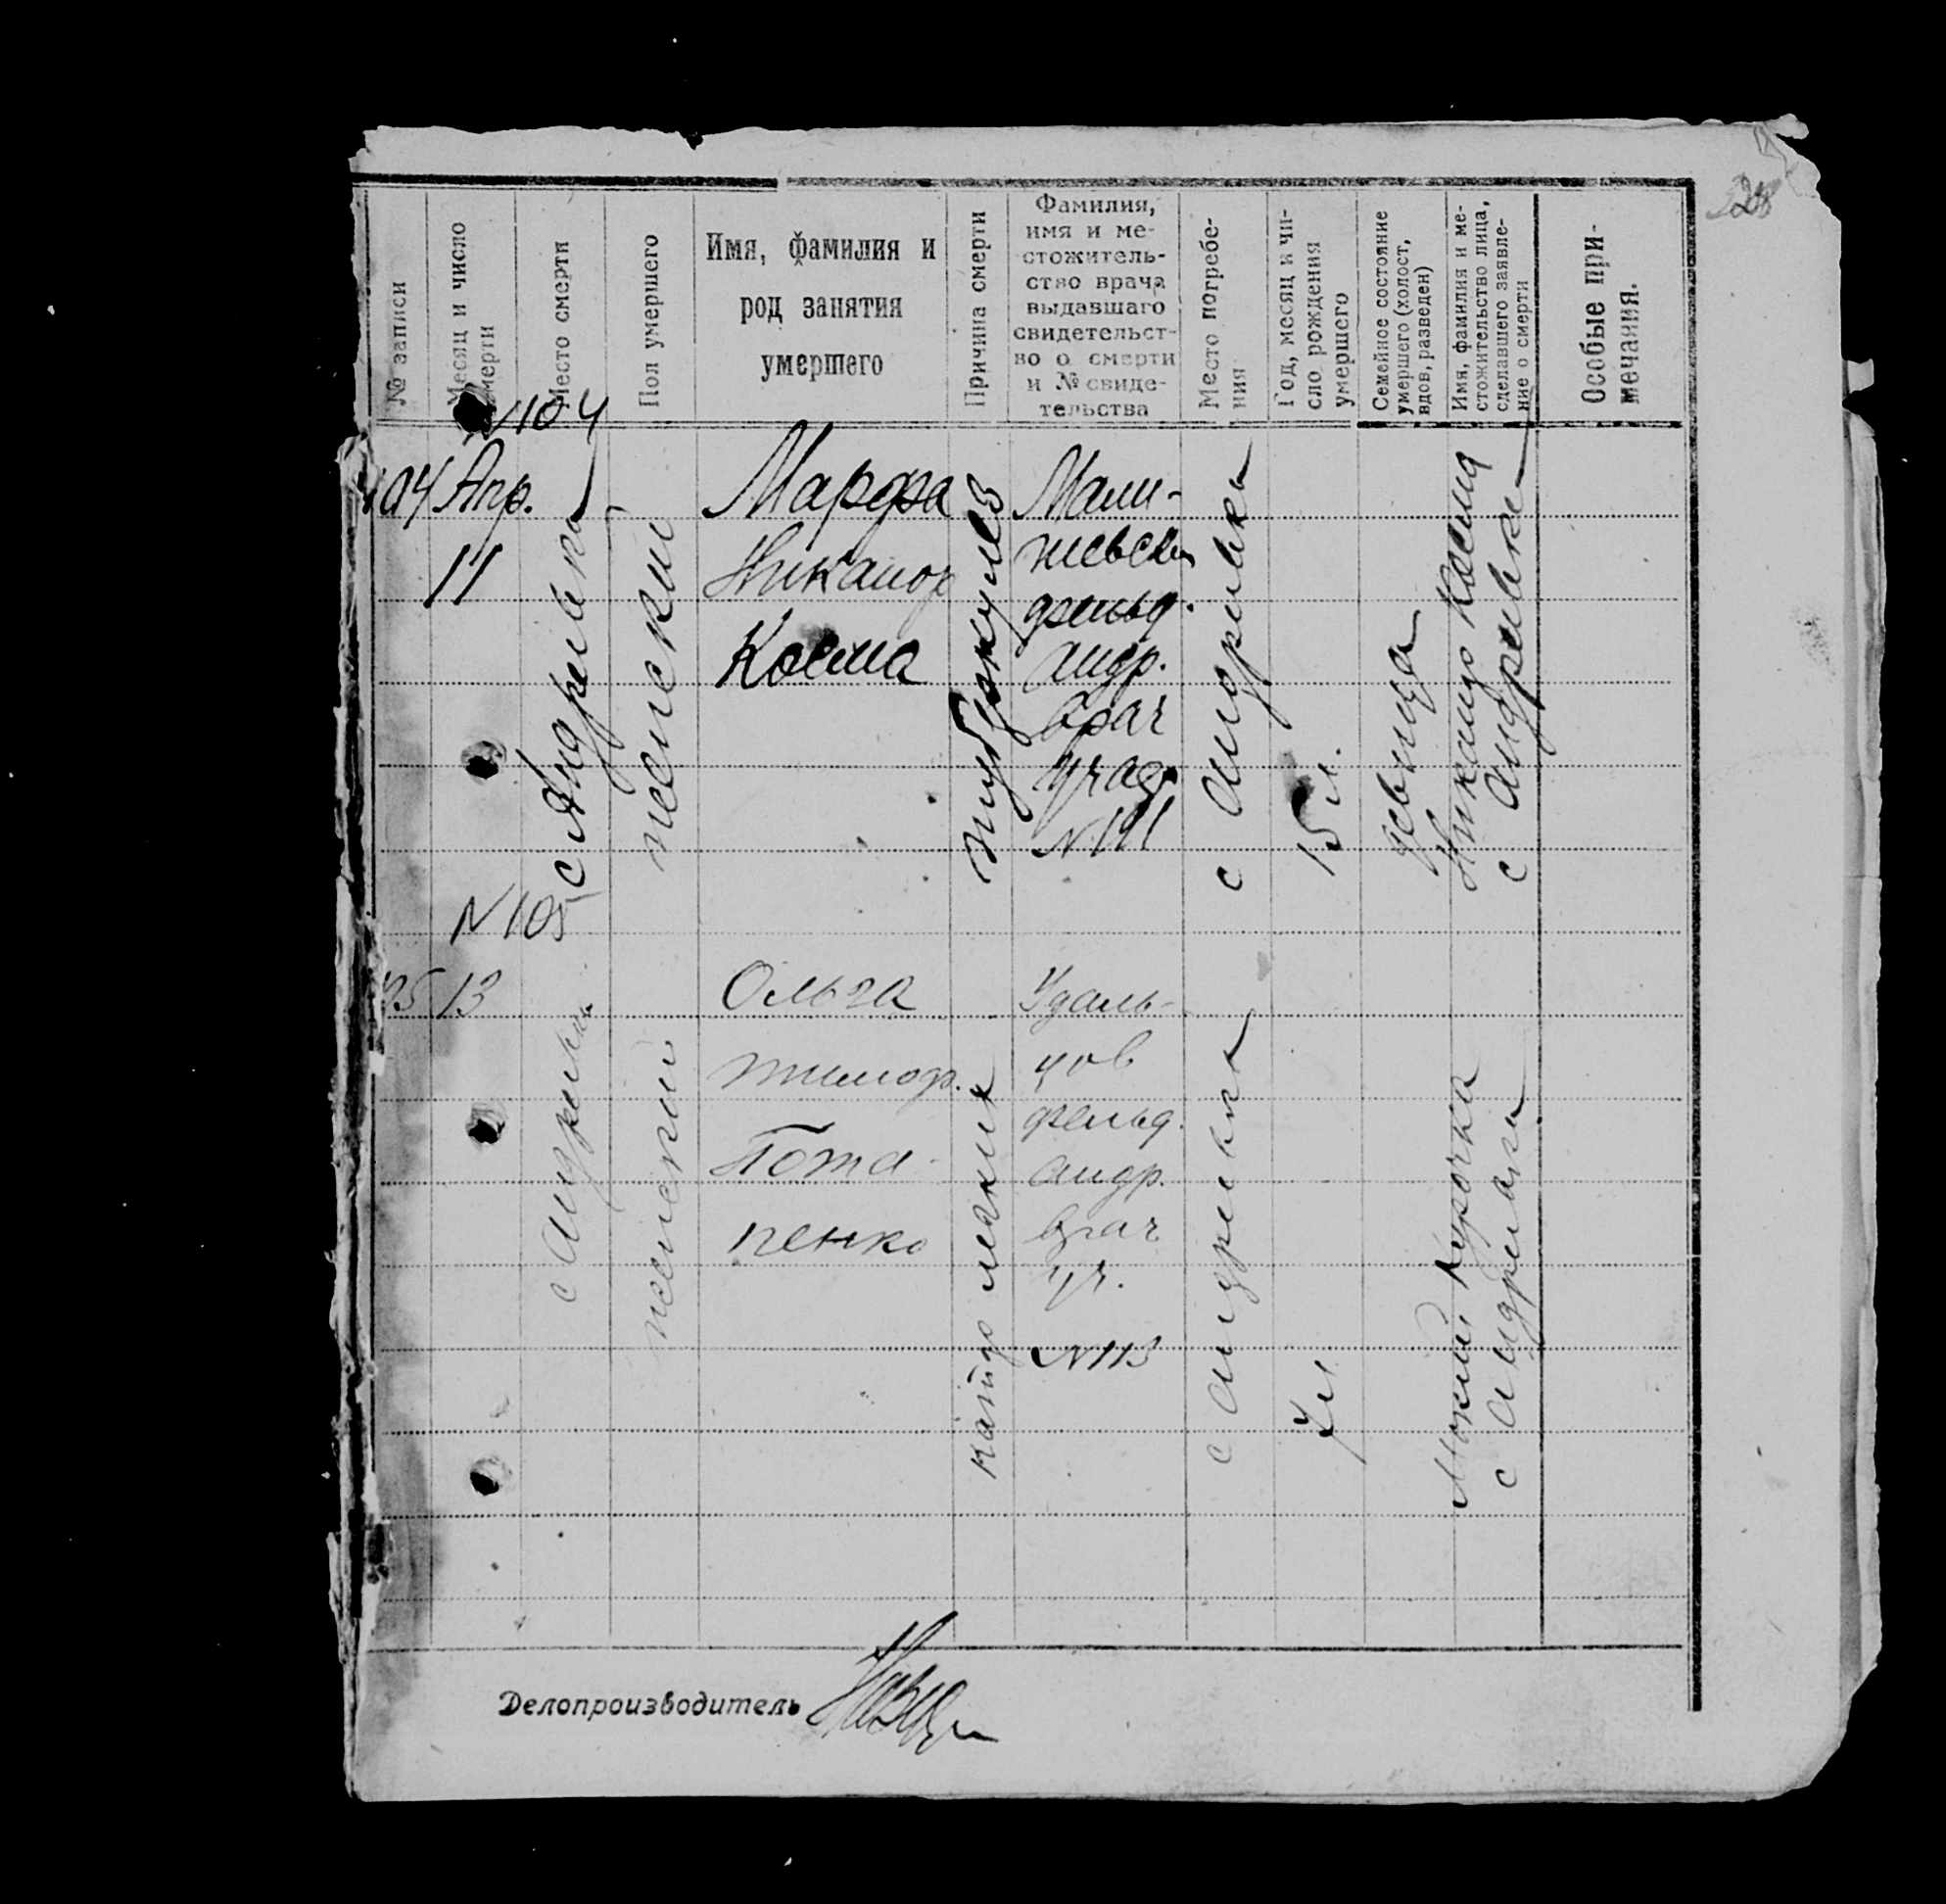 28
№ записи
Месяц и число
смерти
Место смерти
Пол умершего
Имя, фамилия и
род занятия
умершего
Причина смерти
Фамилия,
имя и ме-
стожитель-
ство врача
выдавшаго
свидетельст-
во о смерти
и № свиде-
тельства
Место погребе-
ния
Год, месяц и чи-
сло рождения
умершего
Семейное состояние
умершего (холост,
вдов, разведен)
Имя, фамилия и ме-
стожительство лица,
сделавшего заявле-
ние о смерти
Особые при-
мечания.
N 104
104
Апр.
11
с Андреевка
женский
Марфа
Никанор
Косма
туберкулез
фельд.
Андр.
врач
N 111
с Андреевка
15 л.
девица
Никанор Косма
с Андреевка
N 105
105
13
с Андреевка
женский
Ольга
тимоф.
Пота-
пенко
Удаль-
цов
фельд.
Андр.
врач
уч.
N 113
с Андреевка
7 л
Мокий Курочка
с Андреевка
Делопроизводитель